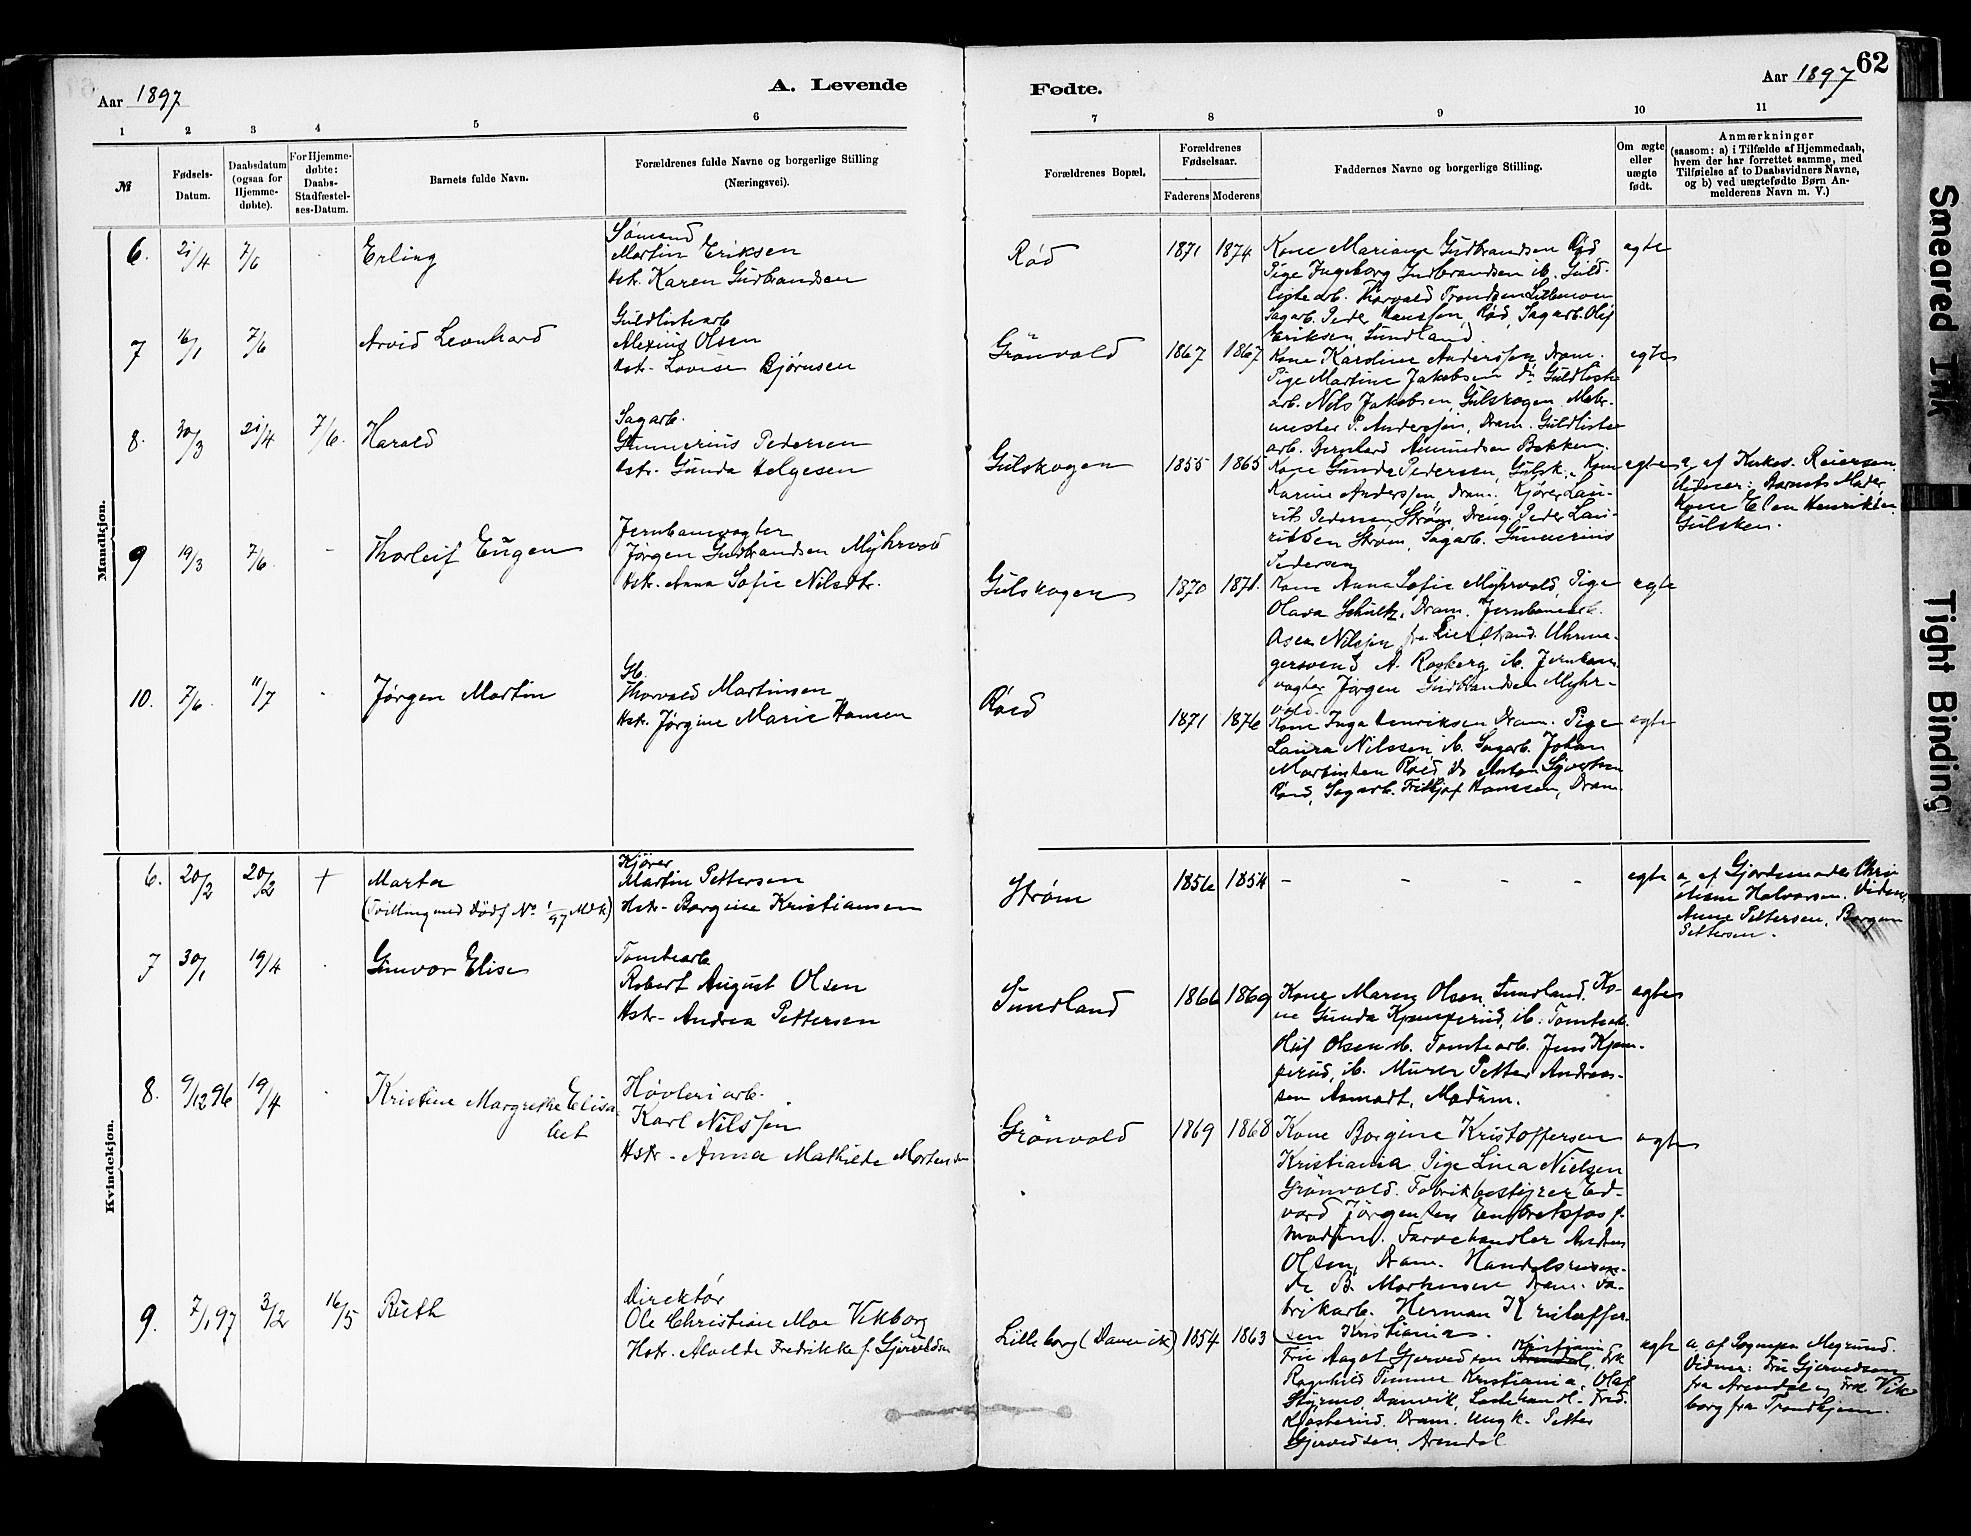 62
Aar 1897
A. Levende
Fødte.
Aar 1897
1 2 3 4 5 6 7 8 9 10 11
№
Fødsels-
Datum.
Daabsdatum
(ogsaa for
Hjemme-
døbte).
For Hjemme-
døbte:
Daabs-
Stadfæstel-
ses-Datum.
Barnets fulde Navn.
Forældrenes fulde Navne og borgerlige Stilling
(Næringsvei).
Forældrenes Bopæl,
Forældrenes
Fødselsaar.
Faderens Moderens
Faddernes Navne og borgerlige Stilling.
Om ægte
eller
uægte
født.
Anmærkninger
(saasom: a) i Tilfælde af Hjemmedaab,
hvem der har forrettet samme, med
Tilføielse af to Daabsvidners Navne,
og b) ved uægtefødte Børn An-
melderens Navn m. V.)
Mandkjøn.
6. 21/4 7/6 Erling
Sømand
Martin Eriksen
Hstr. Karen Gudbrandsen
Rød 1871 1874
Kone Mariane Gudbrandsen Rød
Pige Ingeborg Gudbrandsen ib. Guld-
listearb. Thorvald Trondsen
Sagarb. Peder Hanssen, Rød, Sagarb. Olaf
Eriksen, Sundland.
egte
7 16/1 7/6 Arvid Leonhard
Guldlistearb
Alexius Olsen
Hstr. Lovise Bjørnsen
Grönvold 1867 1867
Kone Karoline Anderssen, Dram.
Pige Martine Jakobsen Do. Guldliste
arb. Nils Jakobsen, Gulskogen, Maler-
mester P. Anderssen, Dram. Guldliste
arb. Bernhard Amundsen Bakken.
egte
8. 30/3 21/4 7/6. Harald
Sagarb.
Gunnerius Pedersen
Hstr. Gunda Helgesen
Gulskogen 1855 1865
Kone Gunda Pedersen, Gulsk., Kone
Karine Anderssen, Dram. Kjører Lau-
rits Pedersen, Strøm, Dreng. Peder Lau-
ritsen Strøm, Sagarb. Gunnerius
Pedersen
egte
a af Kirkes. Reiersen
Vidner: Barnets Moder,
Kone Elen Henriksen
Gulsken.
9 19/3 7/6. - Thorleif Eugen
Jernbanevogter
Jørgen Gudbrandsen Myhrvold
Hstr. Anna Sofie Nilsdtr.
Gulskogen 1870 1871.
Kone Anna Sofie Myhrvold, Pige
Olava Schultz, Dram. Jernbanearb.
Nilssen, fra Lierstrand. Uhrma-
gersvend A. Rogberg ib. Jernbane
vogter Jørgen Gudbrandsen Myhr-
vold.
egte
10. 7/6. 11/7 Jørgen Martin
Gb.
Thorvald Martinsen
Hstr. Jørgine Marie Hansen
Røed 1871 1876
Kone Inga Henriksen Dram. Pige
Laura Nilssen ib. Sagarb. Johan
Martinsen Røed Do Anton Sivertsen
Røed, Sagarb. Fritjof Hanssen, Dram.
egte
Kvindekjøn.
6. 20/2 20/2 + Marta
(Tvilling med Dødf No. 1/97 Mdk)
Kjører
Martin Pettersen
Hstr- Borgine Kristiansen
Strøm 1856 1854
- - - -
egte
a af Gjordemoder Chri-
stiane Halvorsen. Vidner,
Anne Pettersen, Borgine
Pettersen.
7 30/1 19/4 Gunvor Elise
Tomtearb
Robert August Olsen
Hstr- Andrea Pettersen
Sundland 1866 1869
Kone Maren Olsen, Sundland. Ko-
ne Gunda Kjemperud, ib. Tomtearb.
Olaf Olsen ib. Tomtearb. Jens Kjem-
perud, ib. Murer Petter Andreas-
sen Aamodt, Modum.
egte
8. 9/12 96 19/4 Kristine Margrethe Elisa
bet
Høvleriarb.
Karl Nilssen
Hstr- Anna Mathilde Mortensen
Grönvold 1869 1868
Kone Borgine Kristoffersen
Kristiania, Pige Lina Nielsen
Grönvold. Fabrikbestyrer Ed-
vard Jørgensen Embretsfos p.
Modum. Farvehandler Anders
Olsen, Dram. Handelsreisen-
de B. Mortensen Dram. Fa-
brikarb. Herman Kristoffer-
sen Kristiania.
egte
9. 7/1 97 3/2 16/5 Ruth
Direktør
Ole Christian Moe Vikborg
Hstr. Alvilde Fredrikke f. Gjervedsen
Lilleborg (Danvik) 1854 1863
Frue Aagot Gjervedsen Kristiania Arendal, Frk
Ragnhild Kristiania, Olaf
Styrmo, Danvik, Fred.
Klosterud. Dram. Ungk. Petter
Gjervedsen, Arendal
egte
a af Sognepr. Megrund.
Vidner: Fru Gjervedsen
fra Arendal og Frk Vik-
borg fra Trondhjem.
Smeared Ink
Tight Binding